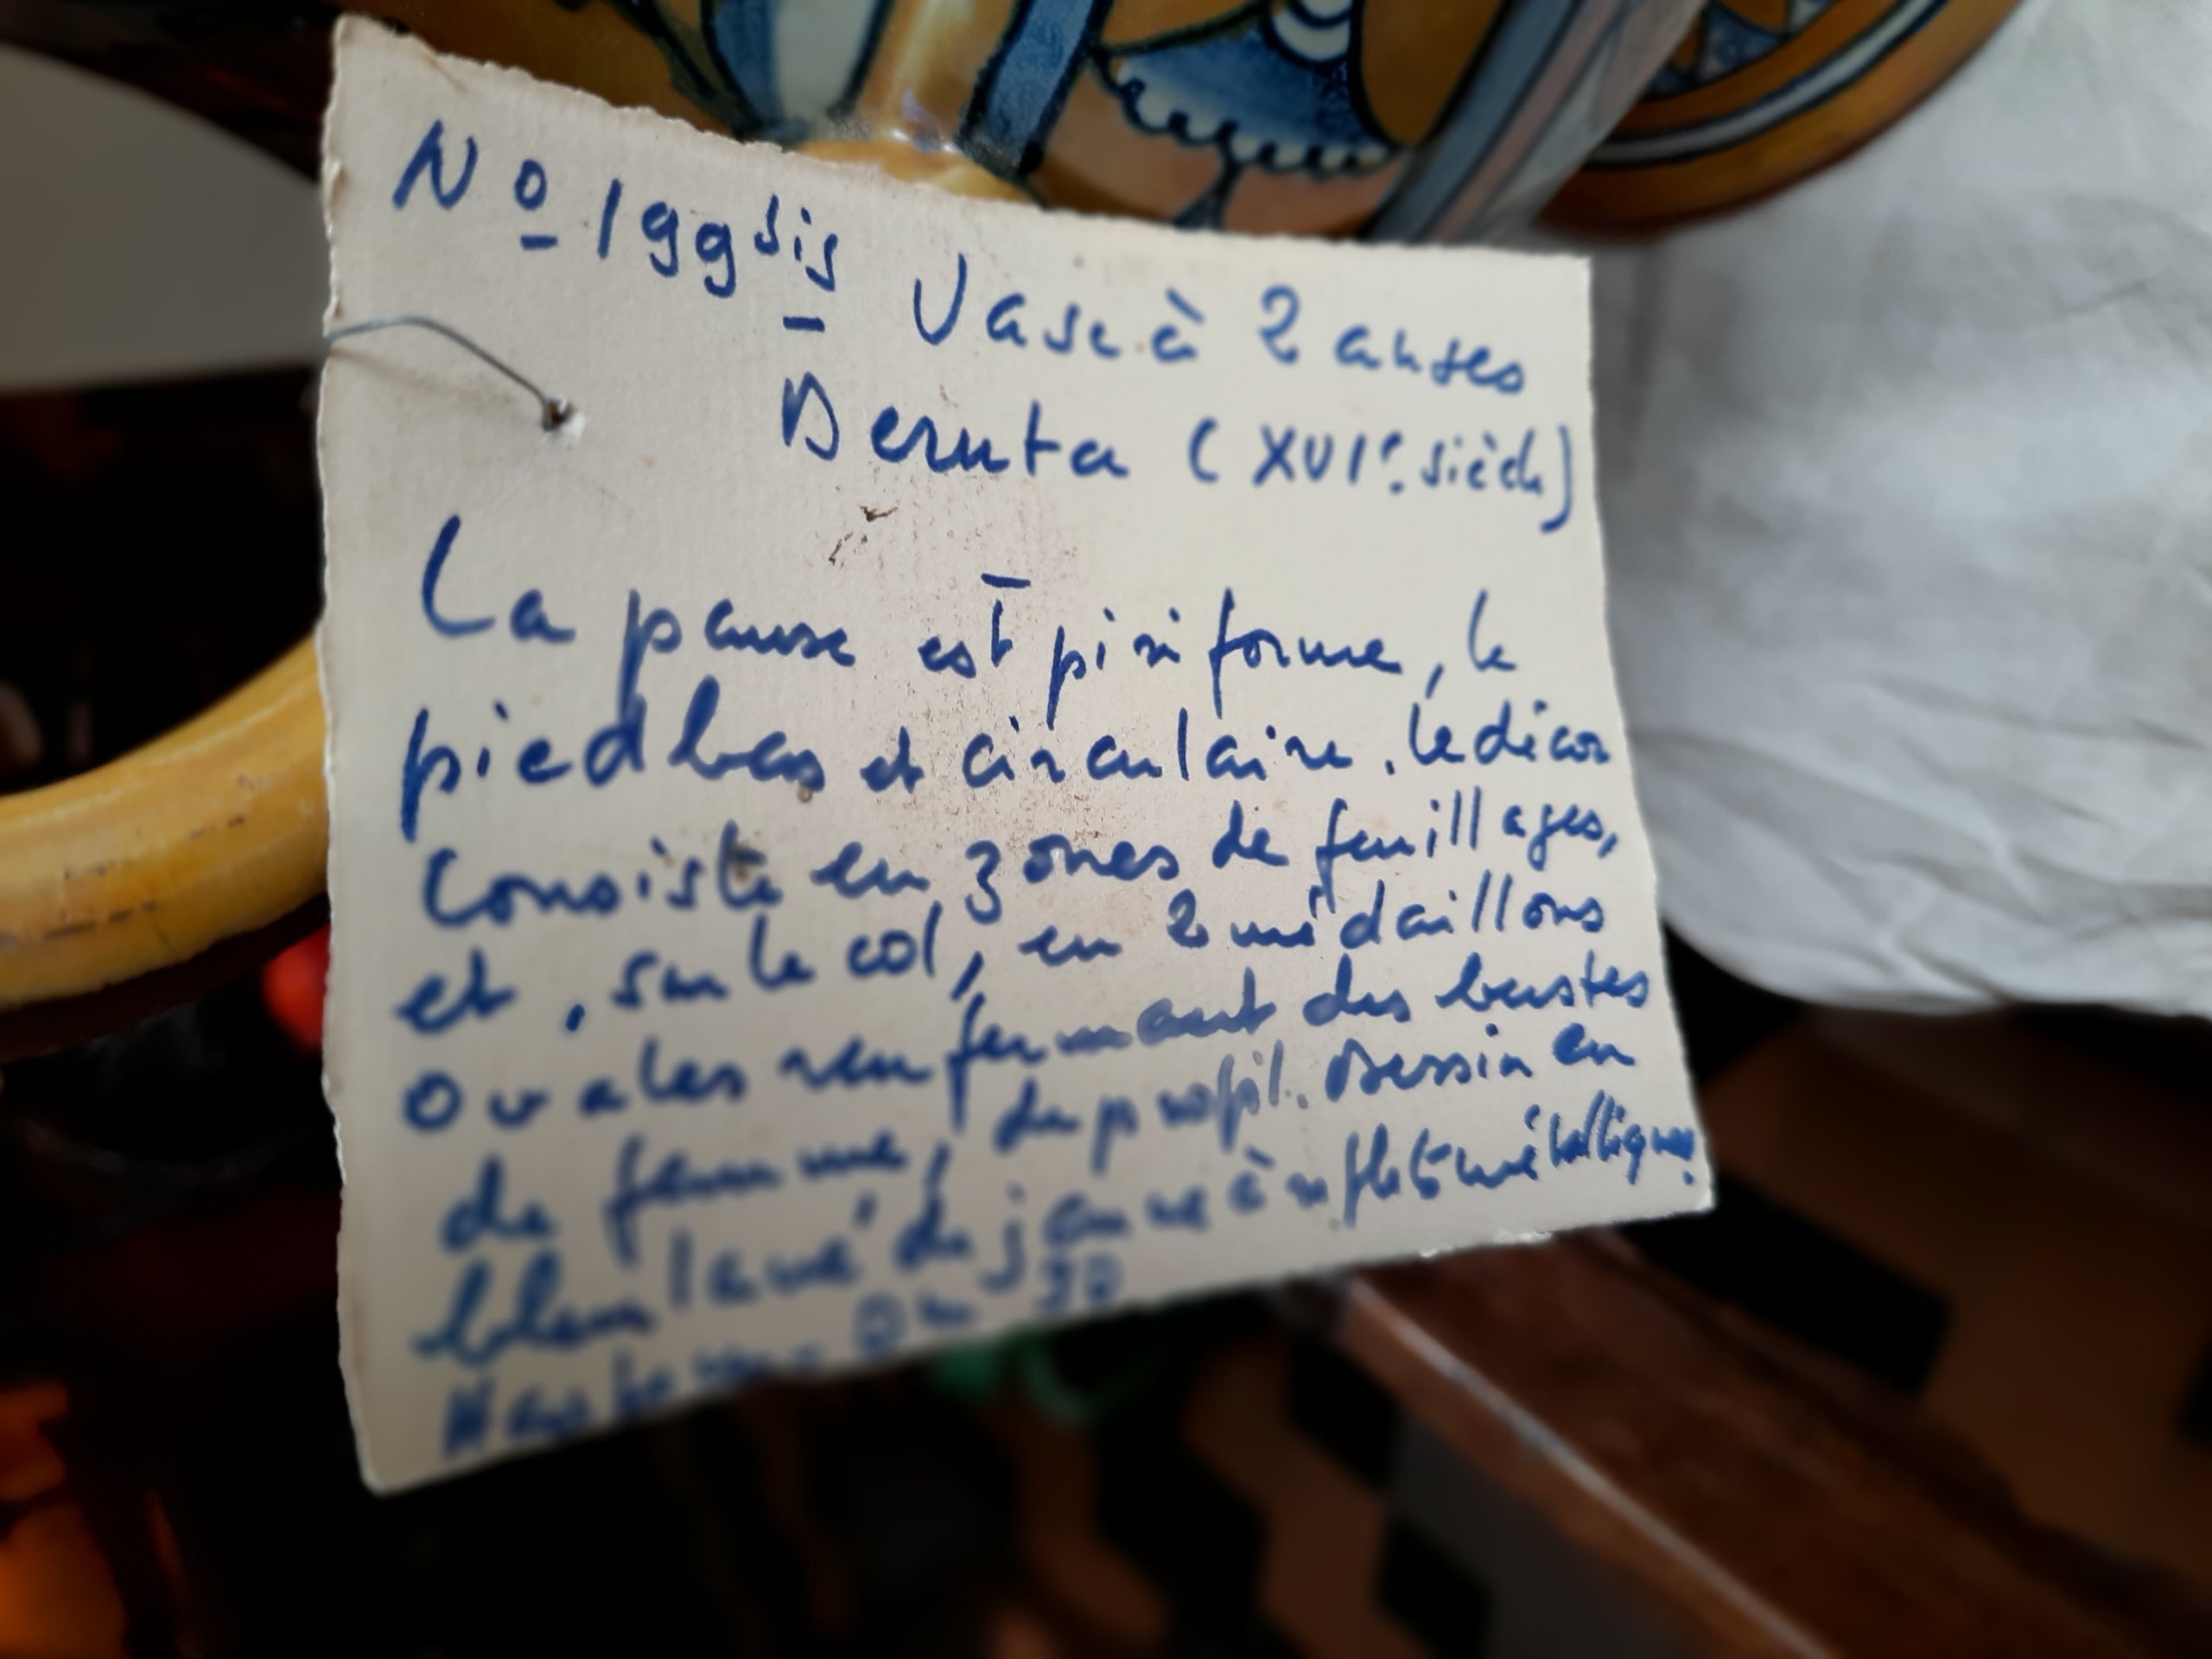 No 199 sis Vase à 2 anses
Deruta (XVIe. siècle)
La panse est piriforme, le
pied bas et circulaire. le décor
consiste en zones de feuillages,
et, sur le col, en 2 médaillons
ovales renfermant des bustes
de femme, de profil. Dessin en
bleu lavé de jaune à reflets métalliques.
Hauteur = 0m